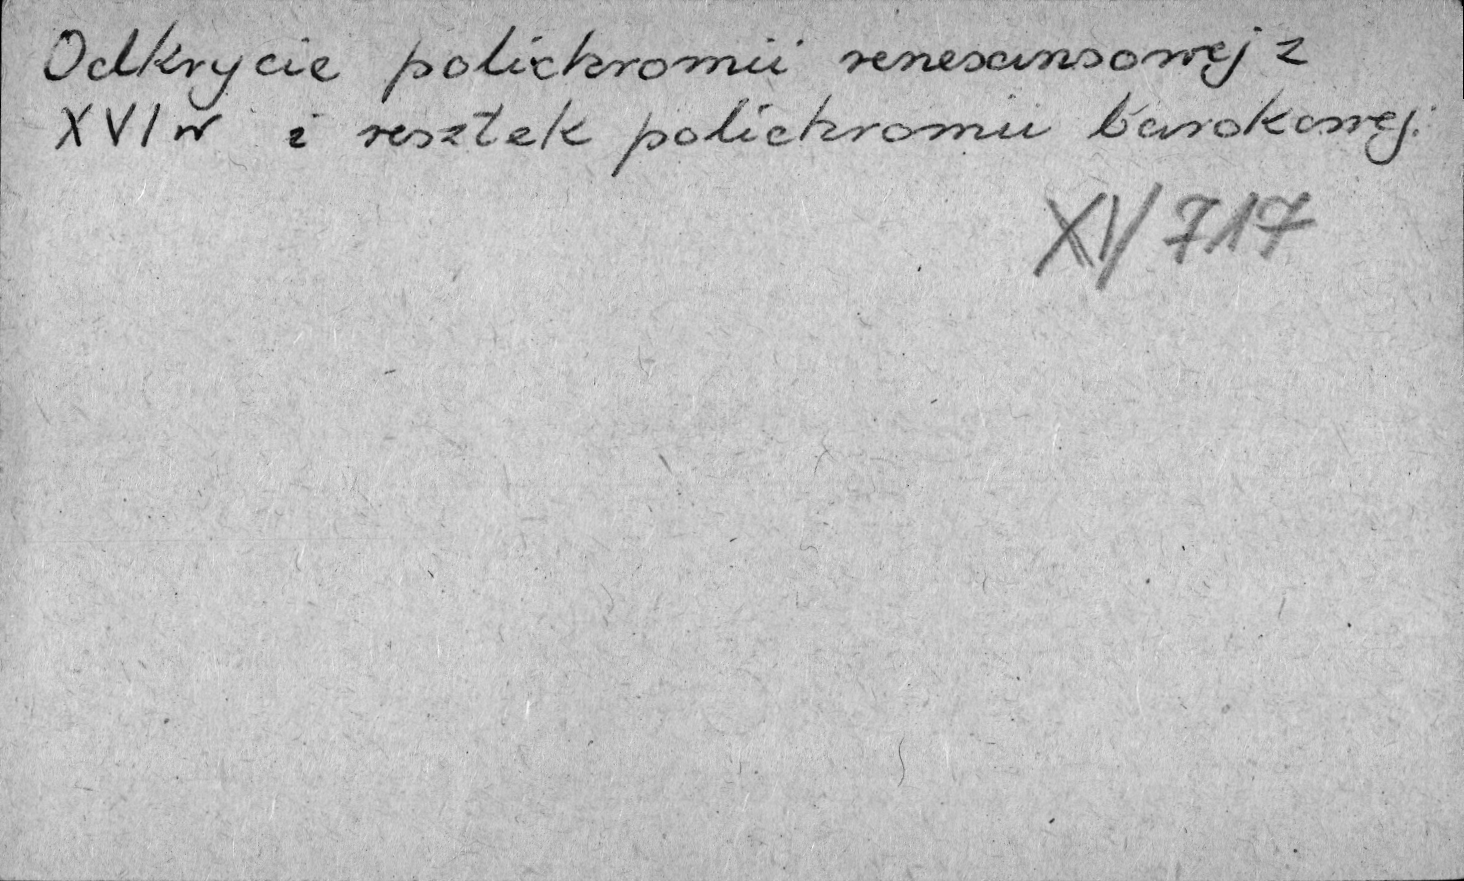 Odkrycie polichromii renesansowej z
XVI w i resztek polichromii barokowej.
XV/717